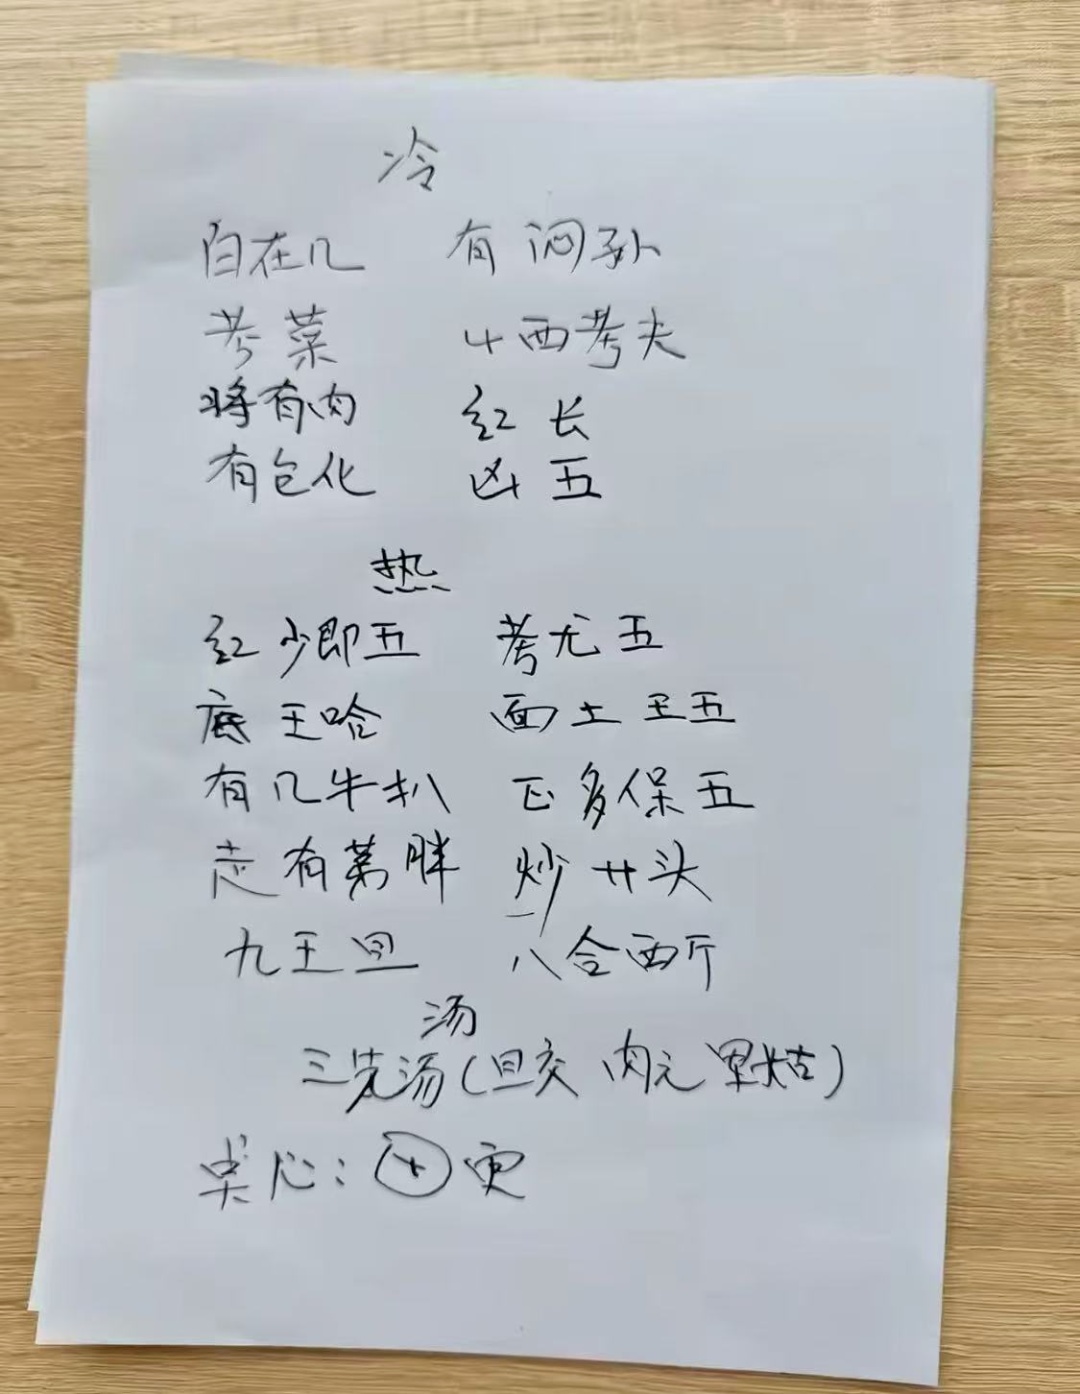 冷
白在几 有闷孙
考菜 4西考夫
将有肉 红长
有包化 凶五
热
红少即五 考尤五
底王哈 面土王五
有几牛扒 正多保五
志有第胖 炒廿头
九王旦 八合西斤
汤
三先汤(旦交 肉元 里姑)
心: 更